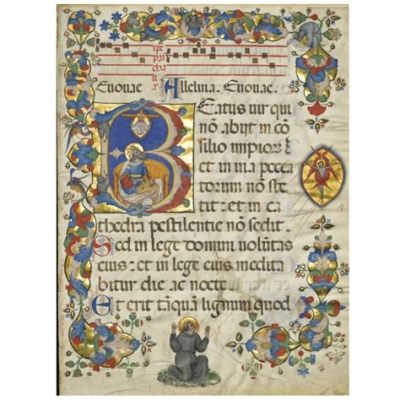 Euouae Alleluia. Euouae.
Beatus uir qui
nō abijt in cō
silio impiorū
et in uia pecca
torum nō ste
tit: et in ca
thedra pestilentie nō sedit.
Sed in lege domini uolūtas
eius: et in lege eius medita
bitur die ac nocte.
Et erit tāquā lignum quod